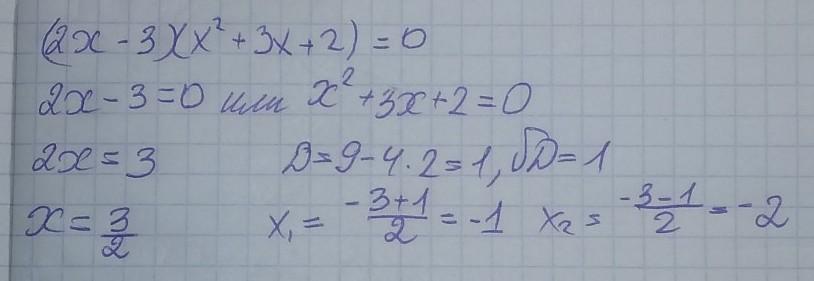 (2x - 3)(x² + 3x + 2) = 0
2x - 3 = 0 или x² + 3x + 2 = 0
2x = 3 D = 9 - 4 · 2 = 1, √D = 1
x = 3/2 x₁ = (-3+1)/2 = -1 x₂ = (-3-1)/2 = -2